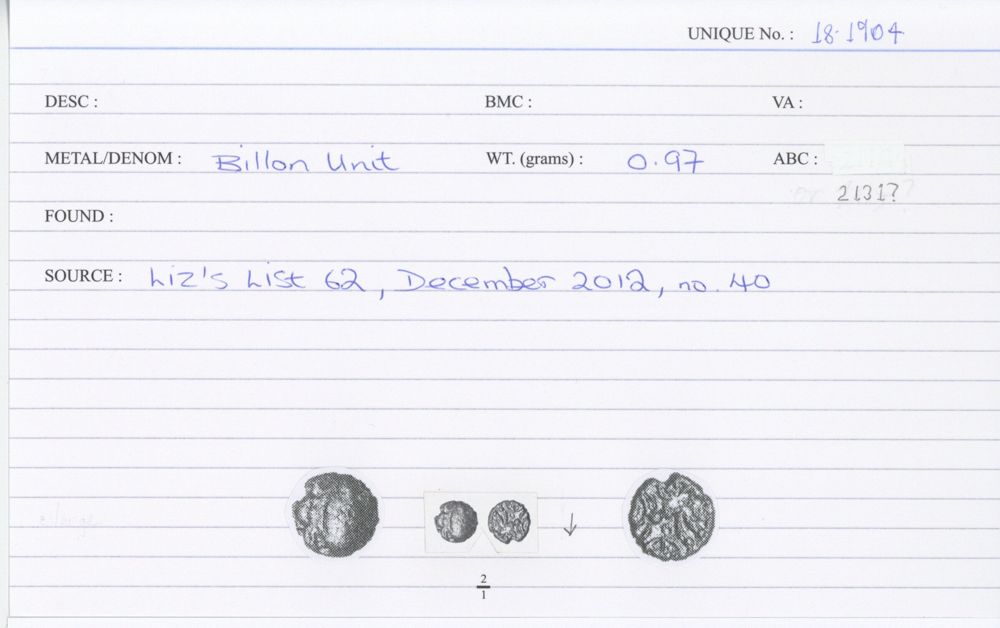 UNIQUE No. : 18.1904
DESC : BMC : VA :
METAL/DENOM : Billon Unit WT. (grams) : 0.97 ABC :
2131?
FOUND :
SOURCE : Liz's List 62, December 2012, no. 40
2
1